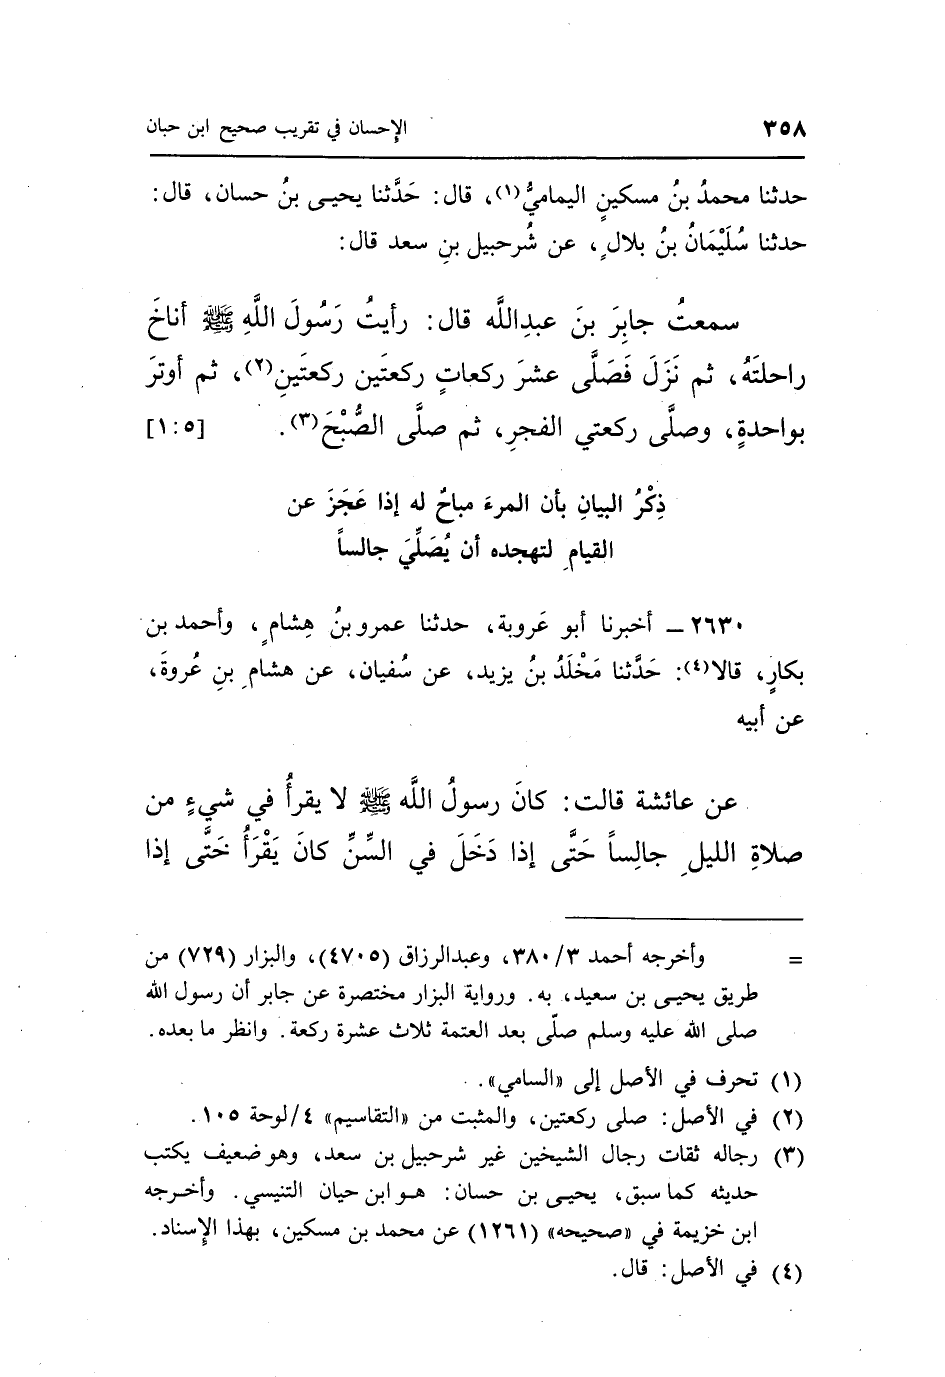 ٣٥٨ الإحسان في تقريب صحيح ابن حبان
حدثنا محمدُ بنُ مسكينٍ اليماميُّ(١)، قال: حَدَّثنا يحيـى بنُ حسان، قال:
حدثنا سُلَيْمَانُ بنُ بلالٍ، عن شُرحبيل بنِ سعد قال:
سمعتُ جابِرَ بنَ عبدِاللَّه قال: رأيتُ رَسُولَ اللَّهِ ﷺ أناخَ
راحلتَهُ، ثم نَزَلَ فَصَلَّى عشرَ ركعاتٍ ركعتَين ركعتَينِ(٢)، ثم أوترَ
بواحدةٍ، وصلَّى ركعتي الفجرِ، ثم صلَّى الصُّبْحَ(٣). [١:٥]
ذِكْرُ البيانِ بأن المرءَ مباحٌ له إذا عَجَزَ عن
القيامِ لتهجده أن يُصَلِّيَ جالساً
٢٦٣٠ ــ أخبرنا أبو عَروبة، حدثنا عمرو بنُ هِشامٍ، وأحمد بن
بكارٍ، قالا(٤): حَدَّثنا مَخْلَدُ بنُ يزيد، عن سُفيان، عن هشامِ بنِ عُروةَ،
عن أبيه
عن عائشة قالت: كانَ رسولُ اللَّه ﷺ لا يقرأُ في شيءٍ من
صلاةِ الليلِ جالِساً حَتَّى إذا دَخَلَ في السِّنِّ كانَ يَقْرَأُ حَتَّى إذا
= وأخرجه أحمد ٣٨٠/٣، وعبدالرزاق (٤٧٠٥)، والبزار (٧٢٩) من
طريق يحيـى بن سعيد، به. ورواية البزار مختصرة عن جابر أن رسول الله
صلى الله عليه وسلم صلّى بعد العتمة ثلاث عشرة ركعة. وانظر ما بعده.
(١) تحرف في الأصل إلى «السامي».
(٢) في الأصل: صلى ركعتين، والمثبت من «التقاسيم» ٤/لوحة ١٠٥.
(٣) رجاله ثقات رجال الشيخين غير شرحبيل بن سعد، وهو ضعيف يكتب
حديثه كما سبق، يحيـى بن حسان: هو ابن حيان التنيسي. وأخرجه
ابن خزيمة في «صحيحه» (١٢٦١) عن محمد بن مسكين، بهذا الإسناد.
(٤) في الأصل: قال.